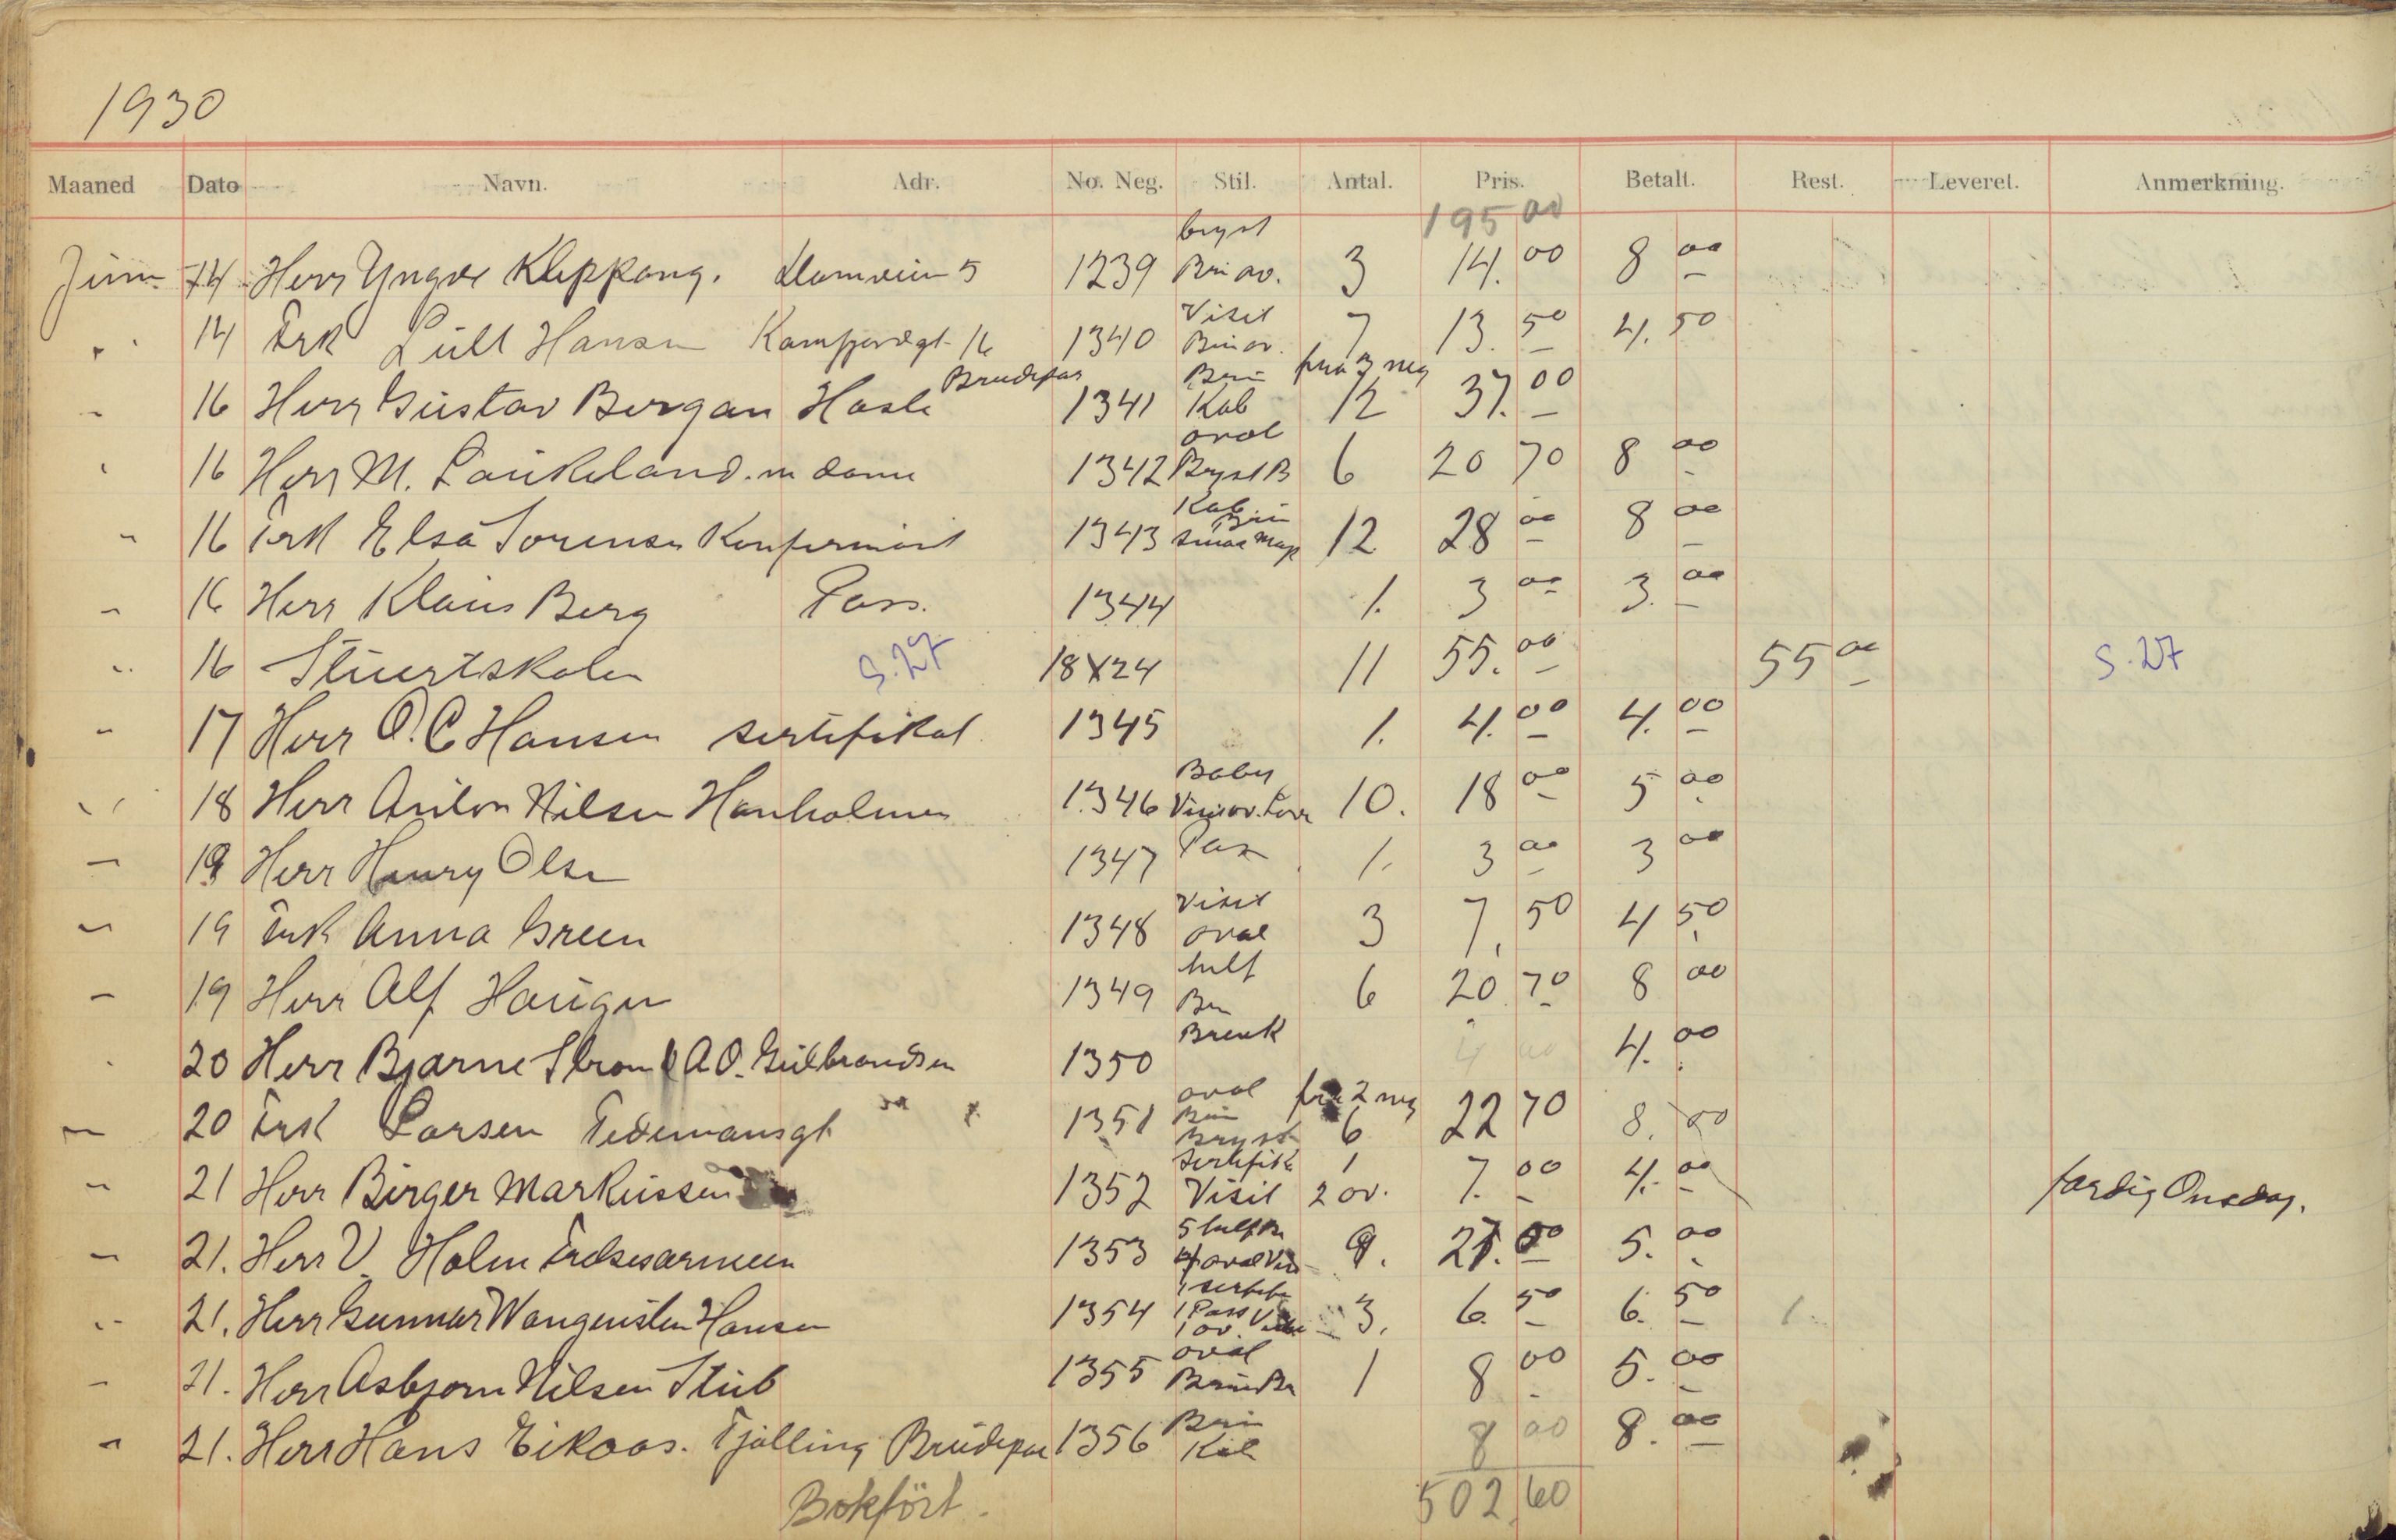 1930
Maaned Dato Navn. Adr. No. Neg. Stil. Antal. Pris. Betalt. Rest. Leveret. Anmerkning.
195 00
bryst
Juni 14 Herr Yngve Kleppang. 5 1239 Bri ov. 3 14.00 8 00
Visit
" 14 Frk Lull Hansen Kamfjordgt. 16 1340 Bri ov. 7 13.50 4.50
Brudepar Bri fra 3 neg
" 16 Herr Gustav Bergan Hasle 1341 Kab 12 37.00
oval
" 16 Herr M. Laukeland. m dame 1342 Bryst B 6 20 70 8 00
Kab Bri
" 16 Frk Elsa Sorensen Konfirmant 1343 smaa Map 12 28 00 8 00
" 16 Herr Klaus Berg Pass. 1344 1. 3 00 3.00
" 16 Stuertskolen S.27 18X24 11 55.00 55 00 S.27
" 17 Herr O. C Hansen sertifikat 1345 1. 4.00 4.00
Baby
" 18 Herr Anton Nilsen Hanholmen 1346 10. 18 00 5 00
Pas
" 19 Herr Henry Olsen 1347 1. 3 00 3 00
Visit
" 19 Frk Anna Green 1348 oval 3 7,50 4 50
hülf
" 19 Herr Alf Haugen 1349 Bri 6 20 70 8 00
Bruuk
" 20 Herr Bjarne Strom A.O. Gulbrandsen 1350 4 00 4.00
oval fra 2 neg
" 20 Frk Larsen Tidemansgt 1351 Bri Bryst 6 22 70 8.00
Sertifik 1
" 21 Herr Birger Markussen 1352 Visit 2 ov. 7.00 4.00 færdig Onsdag.
5 hülf Bri
" 21. Herr V. Holm Frelsesarmeen 1353 4 oval Vis 9. 27.00 5.00
1 sertifik
" 21. Herr Gunnar Wangensten Hansen 1354 1 Pass 1 ov. Visit 3. 6.50 6.50
oval
" 21. Herr Asbjorn Nilsen Stub 1355 1 8 00 5.00
Bri
" 21. Herr Hans Eikaas. Tjølling Brudepar 1356 Kab 8 00 8.00
Bokført. 502,60